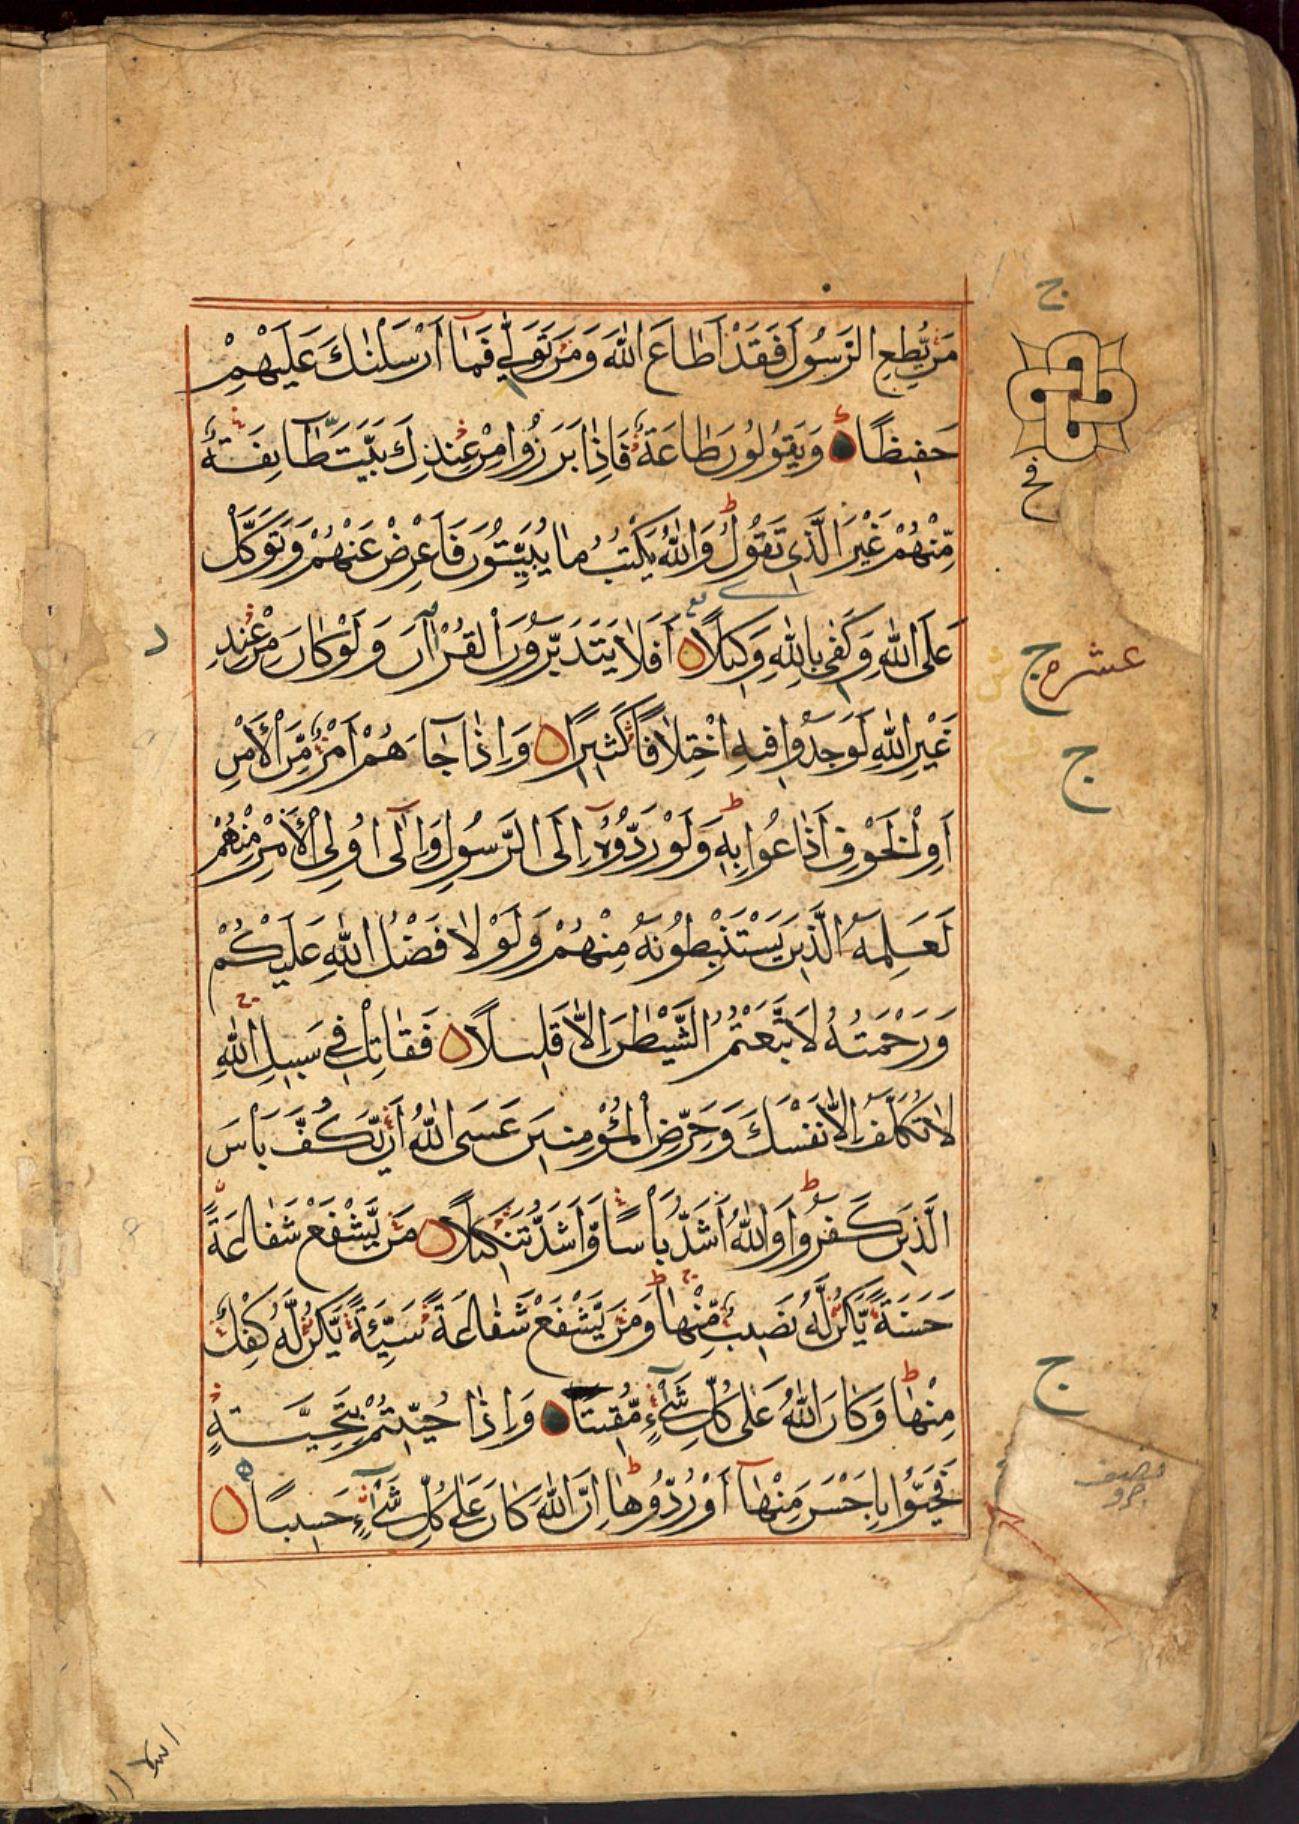 مَنْ يُّطِعِ الرَّسُولَ فَقَدْ اَطَاعَ اللّٰهَ وَمَنْ تَوَلّٰى فَمَآ اَرْسَلْنٰكَ عَلَيْهِمْ
حَفِيظًا وَيَقُولُونَ طَاعَةٌ فَاِذَا بَرَزُوا مِنْ عِنْدِكَ بَيَّتَ طَّآئِفَةٌ
مِّنْهُمْ غَيْرَ الَّذِى تَقُولُ ط وَاللّٰهُ يَكْتُبُ مَا يُبَيِّتُونَ فَاَعْرِضْ عَنْهُمْ وَتَوَكَّلْ
عَلَى اللّٰهِ وَكَفٰى بِاللّٰهِ وَكِيلًا اَفَلَا يَتَدَبَّرُونَ الْقُرْاٰنَ وَلَوْ كَانَ مِنْ عِنْدِ
غَيْرِ اللّٰهِ لَوَجَدُوا فِيهِ اخْتِلَافًا كَثِيرًا وَاِذَا جَآءَهُمْ اَمْرٌ مِّنَ الْاَمْنِ
اَوِ الْخَوْفِ اَذَاعُوا بِهِ ط وَلَوْ رَدُّوهُ اِلَى الرَّسُولِ وَاِلٰٓى اُولِى الْاَمْرِ مِنْهُمْ
لَعَلِمَهُ الَّذِينَ يَسْتَنْبِطُونَهُ مِنْهُمْ وَلَوْلَا فَضْلُ اللّٰهِ عَلَيْكُمْ
وَرَحْمَتُهُ لَاتَّبَعْتُمُ الشَّيْطٰنَ اِلَّا قَلِيلًا فَقَاتِلْ فِى سَبِيلِ اللّٰهِ ج
لَا تُكَلَّفُ اِلَّا نَفْسَكَ وَحَرِّضِ الْمُؤْمِنِينَ عَسَى اللّٰهُ اَنْ يَّكُفَّ بَاْسَ
الَّذِينَ كَفَرُوا ط وَاللّٰهُ اَشَدُّ بَاْسًا وَّاَشَدُّ تَنْكِيلًا مَنْ يَّشْفَعْ شَفَاعَةً
حَسَنَةً يَّكُنْ لَّهُ نَصِيبٌ مِّنْهَا ط وَمَنْ يَّشْفَعْ شَفَاعَةً سَيِّئَةً يَّكُنْ لَّهُ كِفْلٌ
مِنْهَا ط وَكَانَ اللّٰهُ عَلٰى كُلِّ شَىْءٍ مُّقِيتًا وَاِذَا حُيِّيتُمْ بِتَحِيَّةٍ
فَحَيُّوا بِاَحْسَنَ مِنْهَآ اَوْ رُدُّوهَا ط اِنَّ اللّٰهَ كَانَ عَلٰى كُلِّ شَىْءٍ حَسِيبًا
ج
عشره ج
ج
ج